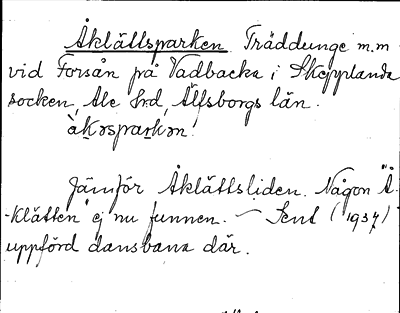 Åklättsparken Träddunge m.m
vid Forsån på Vadbacka i Skepplanda
socken, Ale hrd, Älfsborgs län.
Jämför Åklättsliden. Någon "Å-
-klätten" ej nu funnen. – Sent (1934)
uppförd dansbana där.